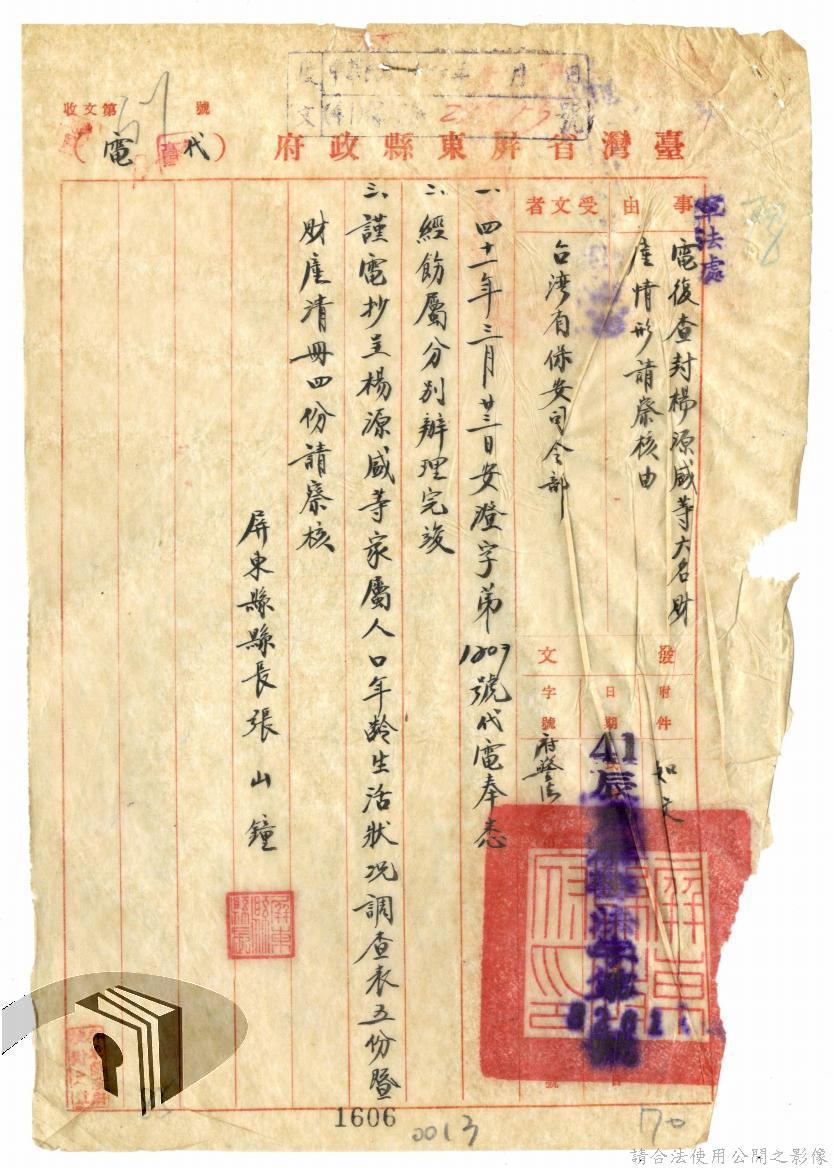 收文第 號
臺灣省屏東縣政府(代電)
事由
電復查封楊源盛等六名財
產情形請鑒核由
軍法處
受文者
台湾省保安司令部
發文
附件
如文
日期
字號
41辰
一、四十一年三月廿三日安澄字第1207號代電奉悉
二、經飭屬分別辦理完竣
三、謹電抄呈楊源盛等家屬人口年齡生活狀況調查表五份暨
財產清冊四份請鑒核
屏東縣縣長張山鐘
屏東縣縣長
1606
0013
70
請合法使用公開之影像